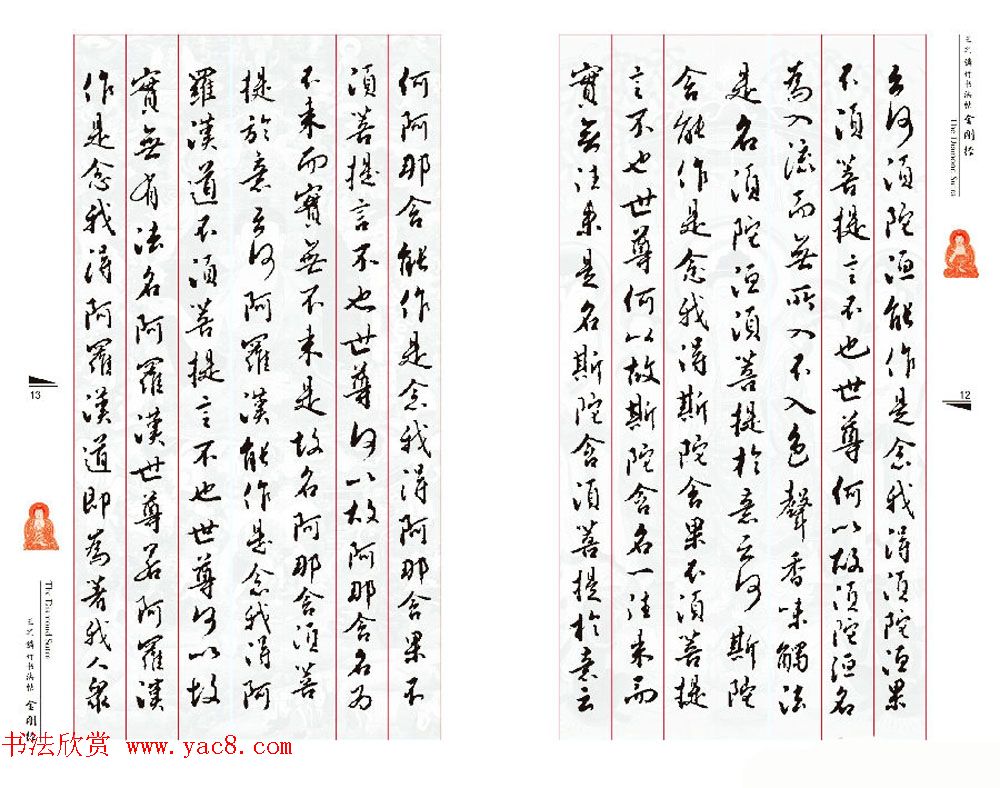 金刚经
The Diamond Sutra
12
云何須陀洹能作是念我得須陀洹果
不須菩提言不也世尊何以故須陀洹名
為入流而無所入不入色聲香味觸法
是名須陀洹須菩提於意云何斯陀
含能作是念我得斯陀含果不須菩提
言不也世尊何以故斯陀含名一往來而
實無往來是名斯陀含須菩提於意云
何阿那含能作是念我得阿那含果不
須菩提言不也世尊何以故阿那含名為
不來而實無不來是故名阿那含須菩
提於意云何阿羅漢能作是念我得阿
羅漢道不須菩提言不也世尊何以故
實無有法名阿羅漢世尊若阿羅漢
作是念我得阿羅漢道即為著我人眾
13
The Diamond Sutra
金刚经
书法欣赏 www.yac8.com